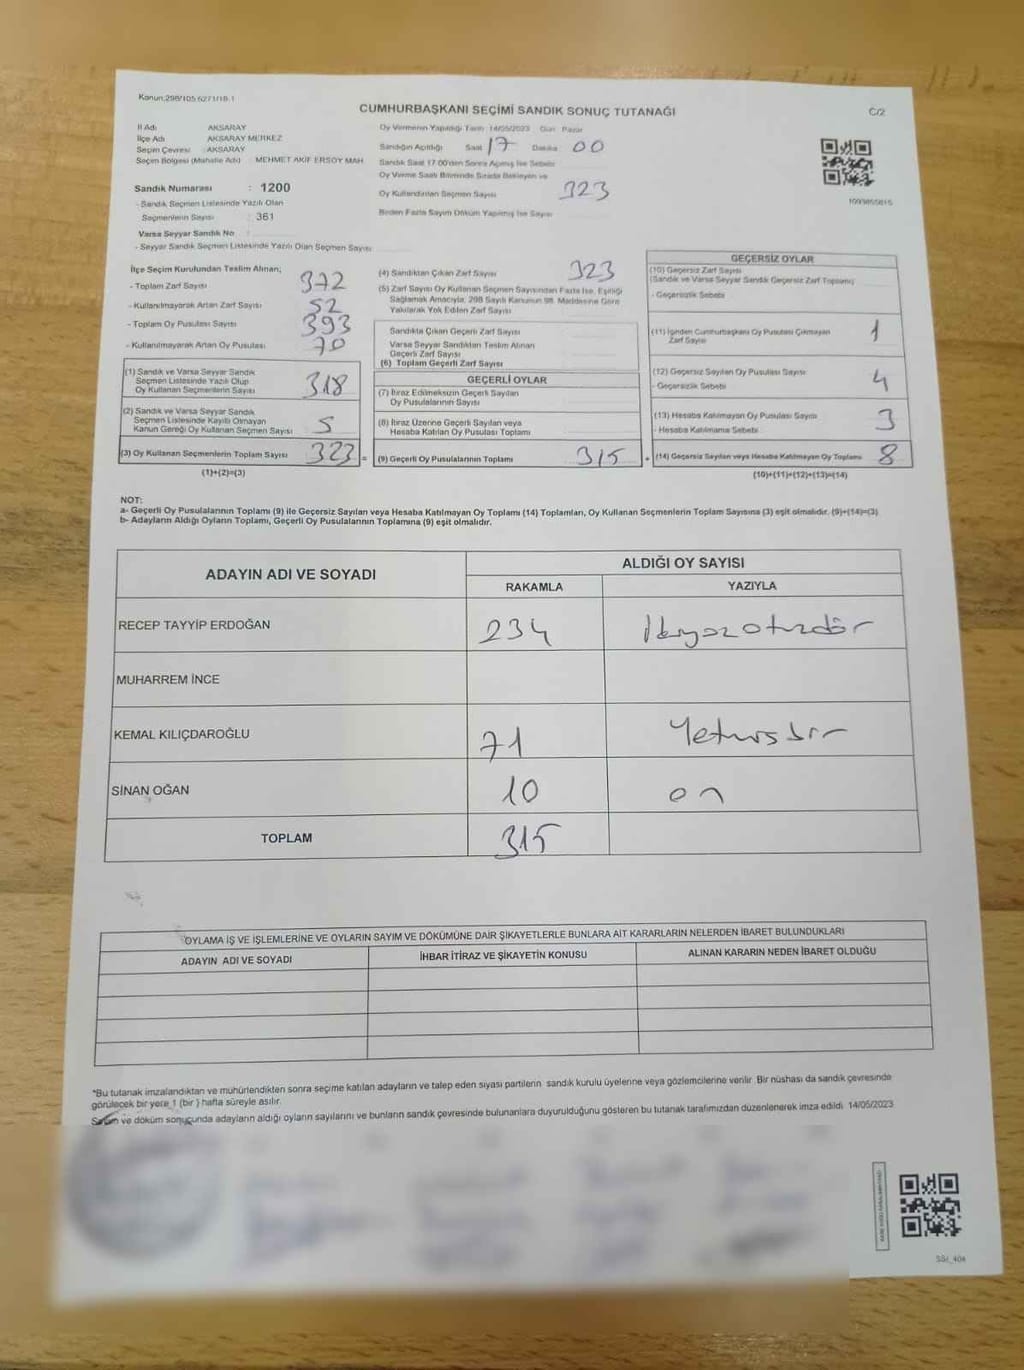 Kanun:298/105.6271/18.1
CUMHURBAŞKANI SEÇİMİ SANDIK SONUÇ TUTANAĞI
C/2
İl Adı AKSARAY
İlçe Adı AKSARAY MERKEZ
Seçim Çevresi : AKSARAY
Seçim Bölgesi (Mahalle Adı) MEHMET AKİF ERSOY MAH.
Sandık Numarası : 1200
- Sandık Seçmen Listesinde Yazılı Olan
Seçmenlerin Sayısı : 361
Varsa Seyyar Sandık No
- Seyyar Sandık Seçmen Listesinde Yazılı Olan Seçmen Sayısı
Oy Vermenin Yapıldığı Tarih 14/05/2023 Gün Pazar
Sandığın Açıldığı Saat 17 Dakika 00
Sandık Saat 17.00'den Sonra Açılmış İse Sebebi
Oy Verme Saati Bitiminde Sırada Bekleyen ve
Oy Kullandırılan Seçmen Sayısı 323
Birden Fazla Sayım Döküm Yapılmış İse Sayısı
İlçe Seçim Kurulundan Teslim Alınan;
- Toplam Zarf Sayısı 372
- Kullanılmayarak Artan Zarf Sayısı 52
- Toplam Oy Pusulası Sayısı 393
- Kullanılmayarak Artan Oy Pusulası 70
(1) Sandık ve Varsa Seyyar Sandık
Seçmen Listesinde Yazılı Olup
Oy Kullanan Seçmenlerin Sayısı 318
(2) Sandık ve Varsa Seyyar Sandık
Seçmen Listesinde Kayıtlı Olmayan
Kanun Gereği Oy Kullanan Seçmen Sayısı 5
(3) Oy Kullanan Seçmenlerin Toplam Sayısı 323 =
(1)+(2)=(3)
(4) Sandıktan Çıkan Zarf Sayısı 323
(5) Zarf Sayısı Oy Kullanan Seçmen Sayısından Fazla İse, Eşitliği
Sağlamak Amacıyla, 298 Sayılı Kanunun 98. Maddesine Göre
Yakılarak Yok Edilen Zarf Sayısı
Sandıkta Çıkan Geçerli Zarf Sayısı
Varsa Seyyar Sandıktan Teslim Alınan
Geçerli Zarf Sayısı
(6) Toplam Geçerli Zarf Sayısı
GEÇERLİ OYLAR
(7) İtiraz Edilmeksizin Geçerli Sayılan
Oy Pusulalarının Sayısı
(8) İtiraz Üzerine Geçerli Sayılan veya
Hesaba Katılan Oy Pusulası Toplamı
(9) Geçerli Oy Pusulalarının Toplamı 315 +
1093855815
GEÇERSİZ OYLAR
(10) Geçersiz Zarf Sayısı
(Sandık ve Varsa Seyyar Sandık Geçersiz Zarf Toplamı)
- Geçersizlik Sebebi
(11) İçinden Cumhurbaşkanı Oy Pusulası Çıkmayan
Zarf Sayısı 1
(12) Geçersiz Sayılan Oy Pusulası Sayısı 4
- Geçersizlik Sebebi
(13) Hesaba Katılmayan Oy Pusulası Sayısı 3
- Hesaba Katılmama Sebebi
(14) Geçersiz Sayılan veya Hesaba Katılmayan Oy Toplamı 8
(10)+(11)+(12)+(13)=(14)
NOT:
a- Geçerli Oy Pusulalarının Toplamı (9) ile Geçersiz Sayılan veya Hesaba Katılmayan Oy Toplamı (14) Toplamları, Oy Kullanan Seçmenlerin Toplam Sayısına (3) eşit olmalıdır. (9)+(14)=(3)
b- Adayların Aldığı Oyların Toplamı, Geçerli Oy Pusulalarının Toplamına (9) eşit olmalıdır.
ADAYIN ADI VE SOYADI ALDIĞI OY SAYISI
RAKAMLA YAZIYLA
RECEP TAYYİP ERDOĞAN 234 İkiyüzotuzdör
MUHARREM İNCE
KEMAL KILIÇDAROĞLU 71 Yetmişbir
SİNAN OĞAN 10 on
TOPLAM 315
OYLAMA İŞ VE İŞLEMLERİNE VE OYLARIN SAYIM VE DÖKÜMÜNE DAİR ŞİKAYETLERLE BUNLARA AİT KARARLARIN NELERDEN İBARET BULUNDUKLARI
ADAYIN ADI VE SOYADI İHBAR İTİRAZ VE ŞİKAYETİN KONUSU ALINAN KARARIN NEDEN İBARET OLDUĞU
*Bu tutanak imzalandıktan ve mühürlendikten sonra seçime katılan adayların ve talep eden siyasi partilerin sandık kurulu üyelerine veya gözlemcilerine verilir. Bir nüshası da sandık çevresinde
görülecek bir yere 1 (bir ) hafta süreyle asılır.
Sayım ve döküm sonucunda adayların aldığı oyların sayılarını ve bunların sandık çevresinde bulunanlara duyurulduğunu gösteren bu tutanak tarafımızdan düzenlenerek imza edildi. 14/05/2023